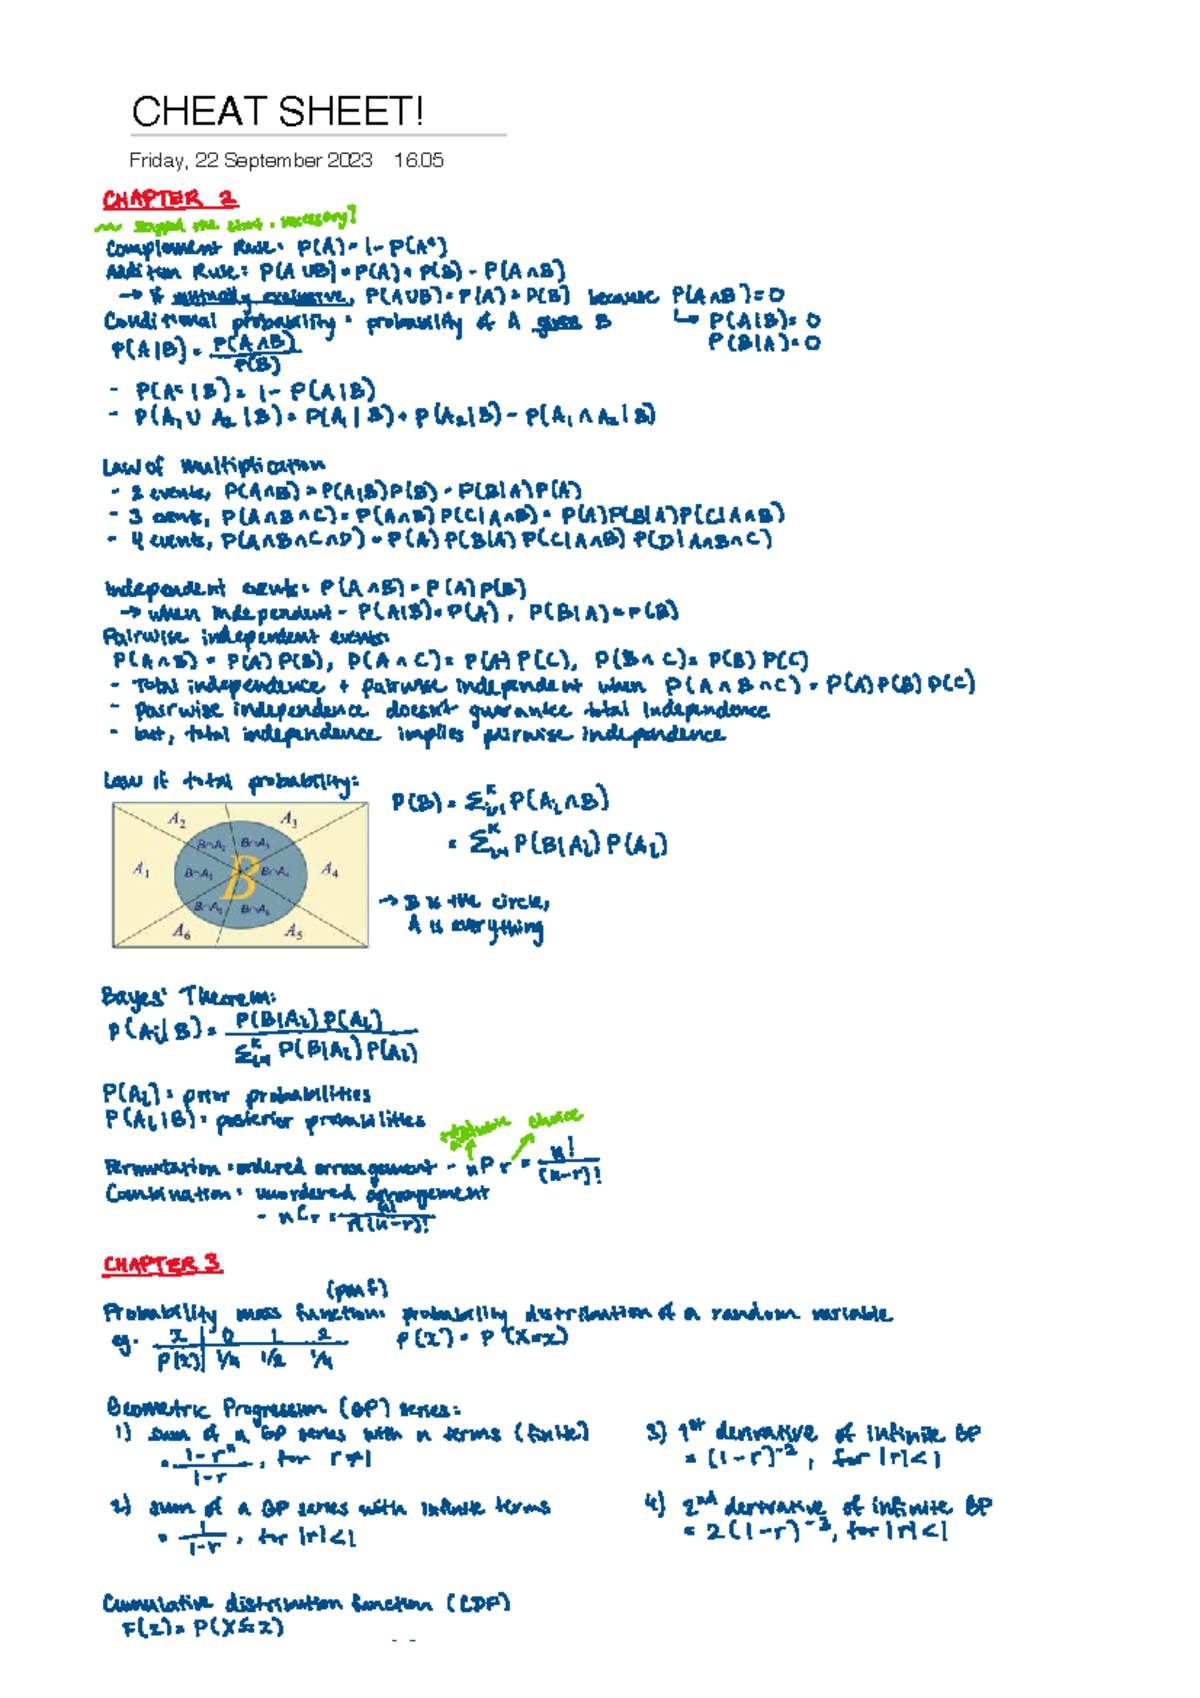 CHEAT SHEET!
Friday, 22 September 2023 16.05
CHAPTER 2
~ skipped the start, necessary?
Complement Rule: P(A) = 1 - P(Aᶜ)
Addition Rule: P(A ∪ B) = P(A) + P(B) - P(A ∩ B)
→ if mutually exclusive, P(A∪B) = P(A) + P(B) because P(A∩B) = 0
Conditional probability = probability of A given B ↳ P(A|B) = 0
P(B|A) = 0
P(A|B) = P(A∩B) / P(B)
- P(Aᶜ|B) = 1 - P(A|B)
- P(A₁ ∪ A₂|B) = P(A₁|B) + P(A₂|B) - P(A₁ ∩ A₂|B)
Law of multiplication
- 2 events, P(A∩B) = P(A|B)P(B) = P(B|A)P(A)
- 3 events, P(A∩B∩C) = P(A∩B) P(C|A∩B) = P(A)P(B|A)P(C|A∩B)
- 4 events, P(A∩B∩C∩D) = P(A) P(B|A) P(C|A∩B) P(D|A∩B∩C)
Independent events: P(A∩B) = P(A)P(B)
→ when independent - P(A|B) = P(A), P(B|A) = P(B)
Pairwise independent events:
P(A∩B) = P(A) P(B), P(A∩C) = P(A) P(C), P(B∩C) = P(B) P(C)
- Total independence + pairwise independent when P(A∩B∩C) = P(A)P(B)P(C)
- pairwise independence doesn't guarantee total independence
- but, total independence implies pairwise independence
Law of total probability:
P(B) = Σᵢ₌₁ᴷ P(Aᵢ∩B)
= Σᵢ₌₁ᴷ P(B|Aᵢ) P(Aᵢ)
A₂ A₃
B∩A₂ B∩A₃
A₁ B∩A₁ B B∩A₄ A₄
B∩A₆ B∩A₅
A₆ A₅
→ B is the circle,
A is everything
Bayes' Theorem:
P(Aᵢ|B) = P(B|Aᵢ) P(Aᵢ) / Σᵢ₌₁ᴷ P(B|Aᵢ) P(Aᵢ)
P(Aᵢ) = prior probabilities
P(Aᵢ|B) = posterior probabilities
choice
Permutation = ordered arrangement - nPr = n! / (n-r)!
Combination = unordered arrangement
- nCr = n! / r!(n-r)!
CHAPTER 3
(pmf)
Probability mass function: probability distribution of a random variable
eg. x | 0 1 2 p(x) = P(X=x)
P(x) | 1/4 1/2 1/4
Geometric Progression (GP) series:
1) sum of a GP series with n terms (finite)
= 1-rⁿ / 1-r, for r≠1
2) sum of a GP series with infinite terms
= 1 / 1-r, for |r|<1
3) 1st derivative of infinite GP
= (1-r)⁻², for |r|<1
4) 2nd derivative of infinite GP
= 2(1-r)⁻³, for |r|<1
Cumulative distribution function (CDF)
F(x) = P(X≤x)